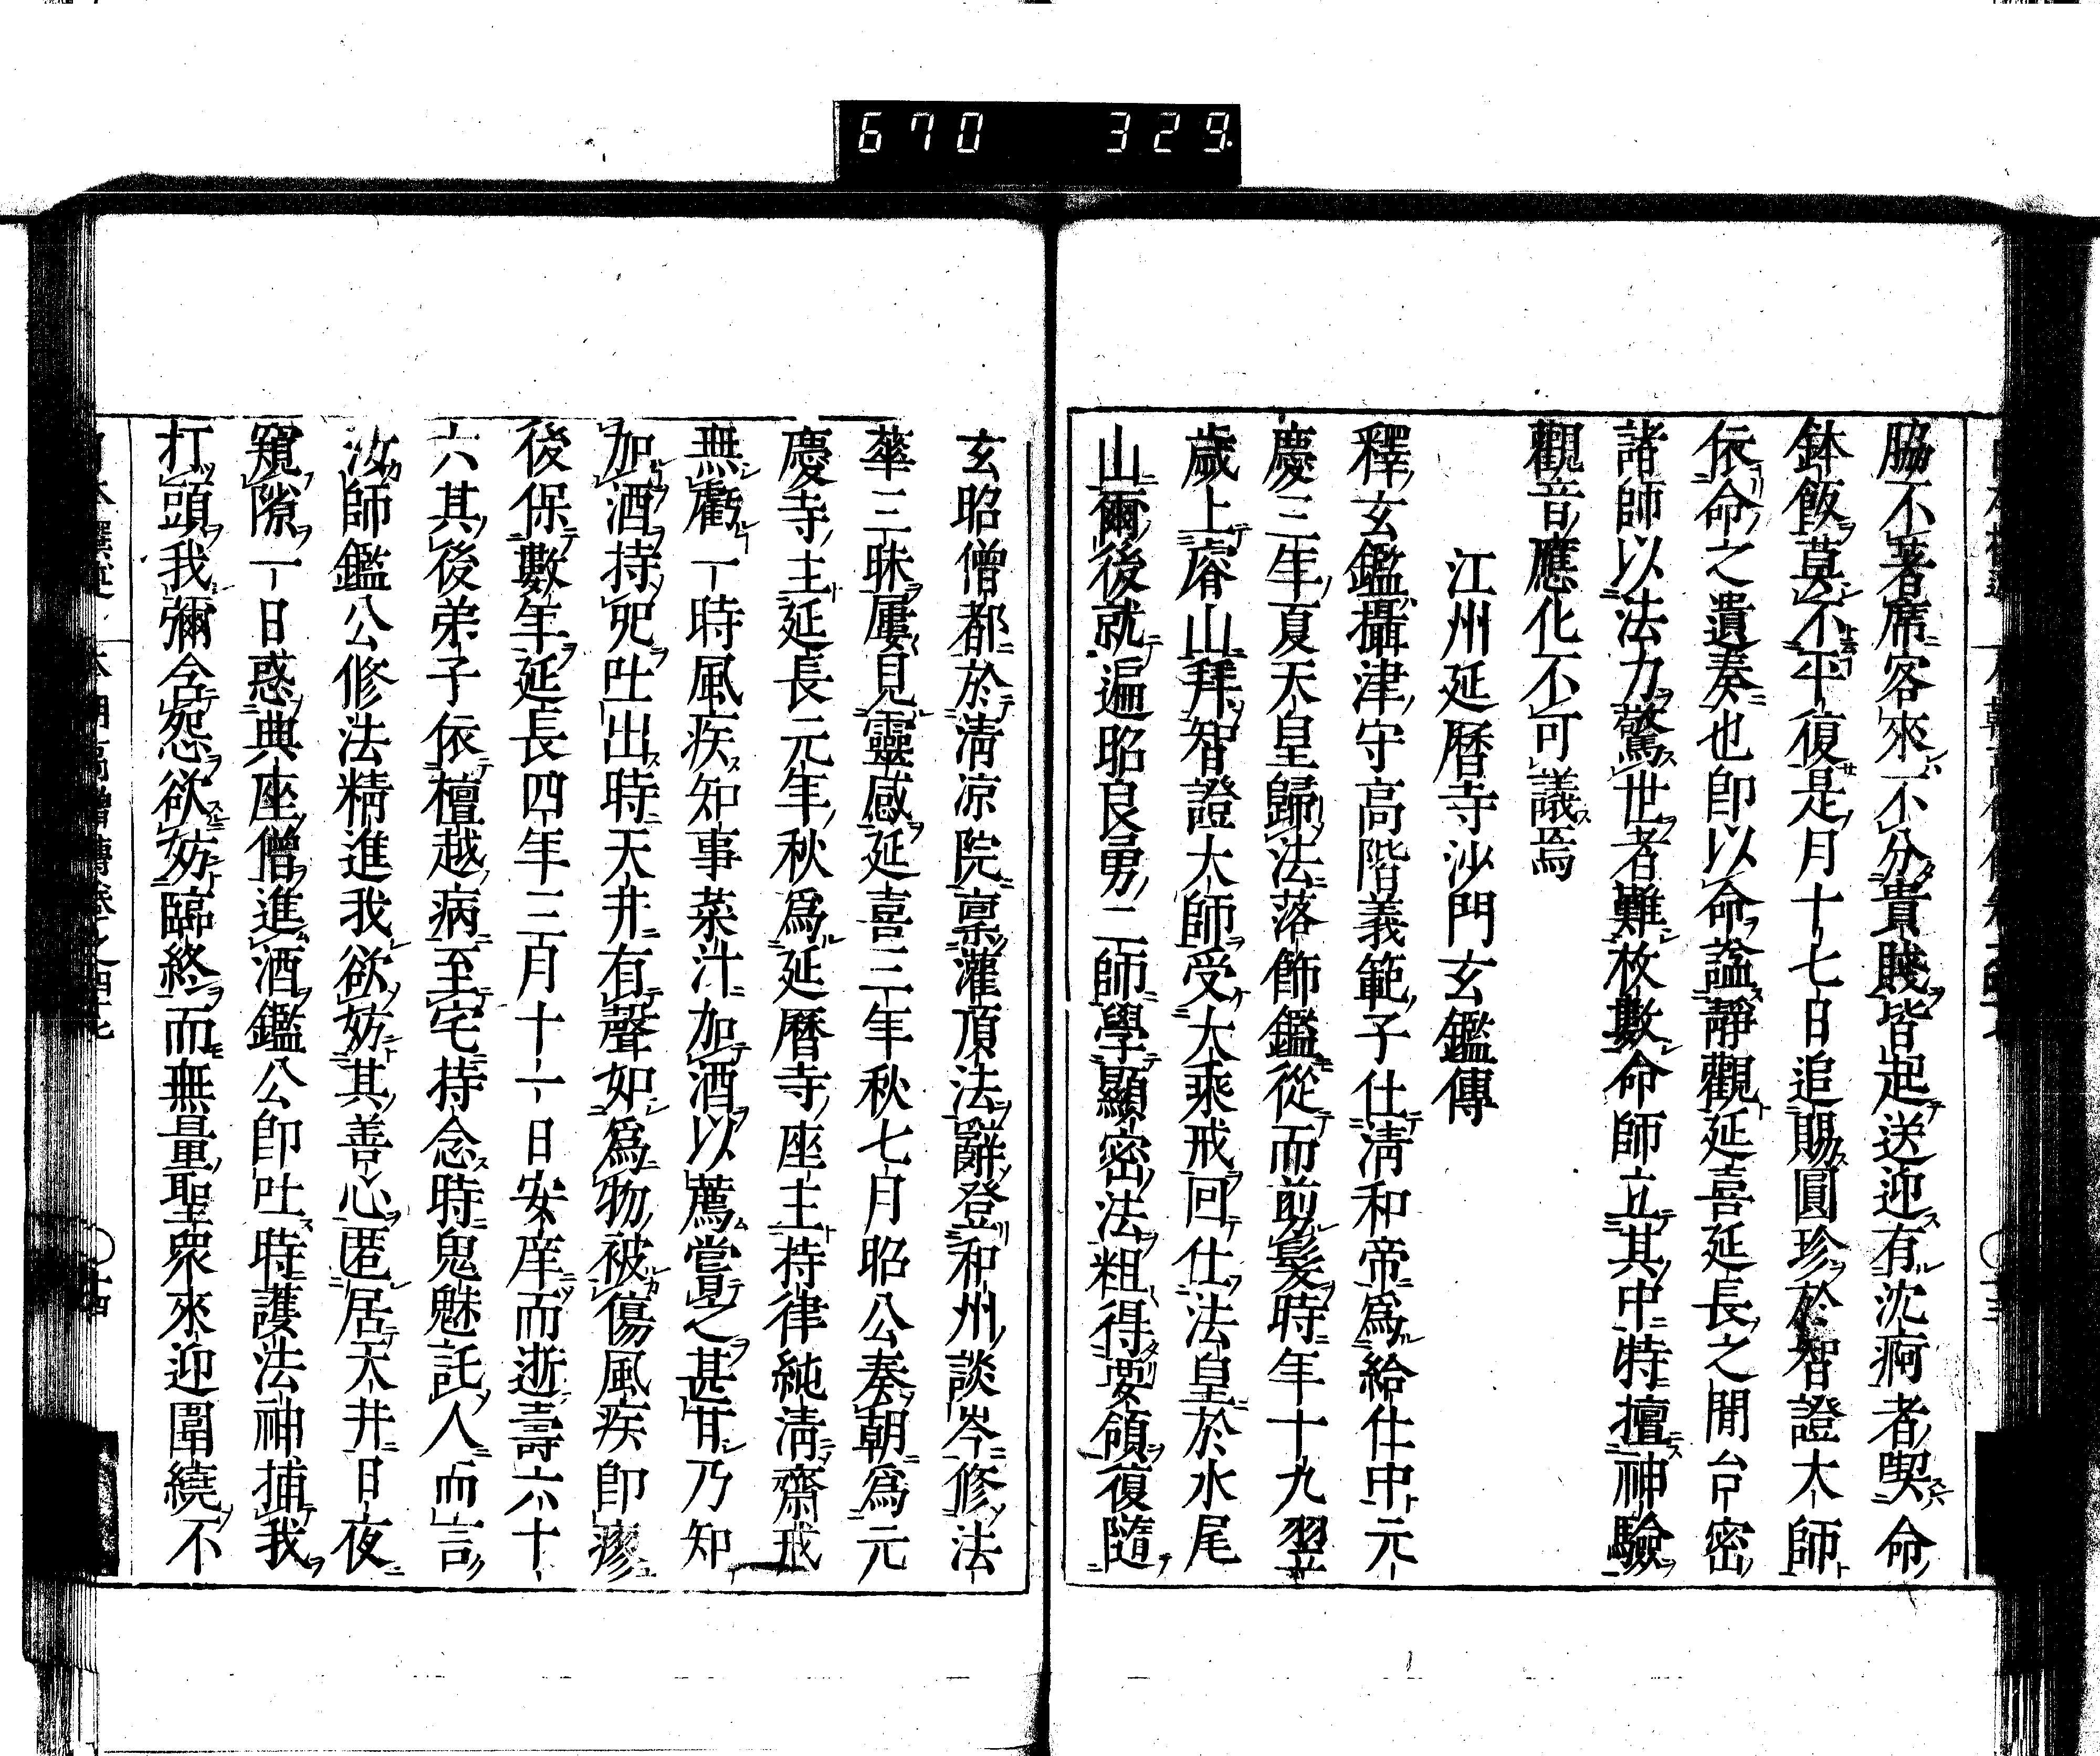 670 329
脇不著席客來不分貴賤皆起送迎有沈痾者喫命
鉢飯莫不平復是月十七日追賜圓珍於智證大師
依命之遺奏也卽以命諡靜觀延喜延長之閒台密
諸師以法力驚世者難枚數命師立其中特擅神驗
觀音應化不可議焉
江州延曆寺沙門玄鑑傳
釋玄鑑攝津守高階義範子仕淸和帝爲給仕中元
慶三年夏天皇歸法落飾鑑從而剪髮時年十九翌
歲上睿山拜智證大師受大乘戒回仕法皇於水尾
山爾後就遍昭良勇二師學顯密法粗得要領復隨
玄昭僧都於淸凉院稟灌頂法辭登和州談岑修法
華三昧屢見靈感延喜三年秋七月昭公奏朝爲元
慶寺主延長元年秋爲延曆寺座主持律純淸齋戒
無虧一時風疾知事菜汁加酒以薦嘗之甚甘乃知
加酒持咒吐出時天井有聲如爲物被傷風疾卽瘳
後保數年延長四年三月十一日安庠而逝壽六十
六其後弟子依檀越病至宅持念時鬼魅託人而言
汝師鑑公修法精進我欲妨其善心匿居天井日夜
窺隙一日惑典座僧進酒鑑公卽吐時護法神捕我
打頭我彌含怨欲妨臨終而無量聖衆來迎圍繞不